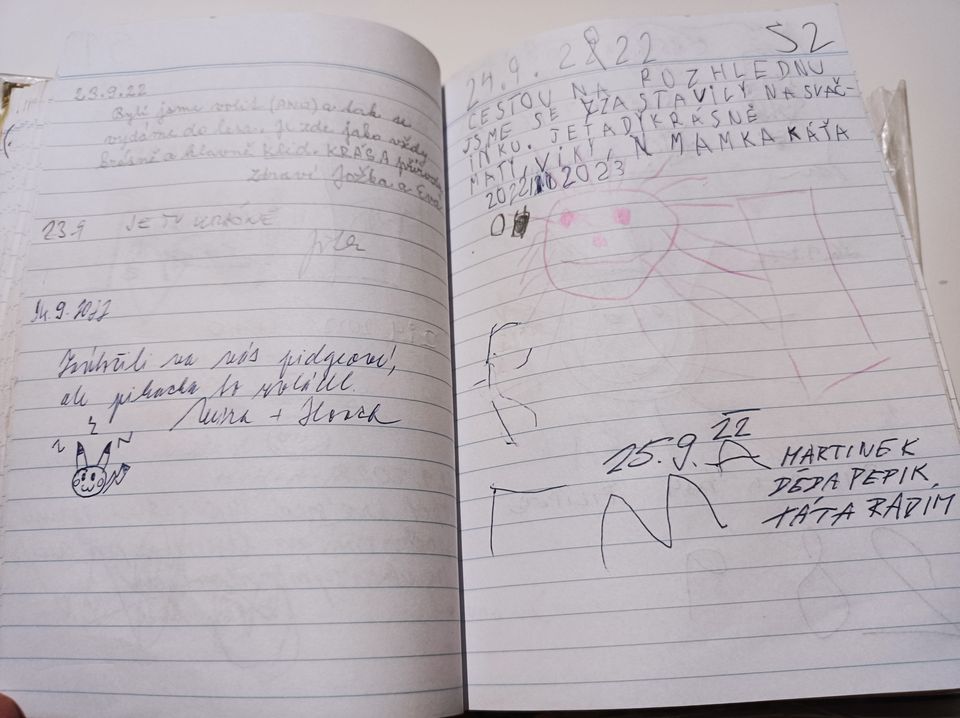 23.9.22
Byli jsme volit (ANO) a tak se
vydáme do lesa. Je zde jako vždy
krásně a hlavně klid. KRÁSA přírody
zdraví Jožka a Eva
23.9 JE TU KRÁSNĚ
24.9.2022
Zaútočili na nás pidgeoni,
ale pikachu to zvládl.
24.9.2022 52
CESTOU NA ROZHLEDNU
JSME SE ZZASTAVILY NA SVAČ-
INKU. JE TADY KRÁSNĚ
MATÍ, VIKY, N MAMKA KÁŤA
2022 2023
25.9.22
MARTINEK
DĚDA PEPIK,
TÁTA RADIM